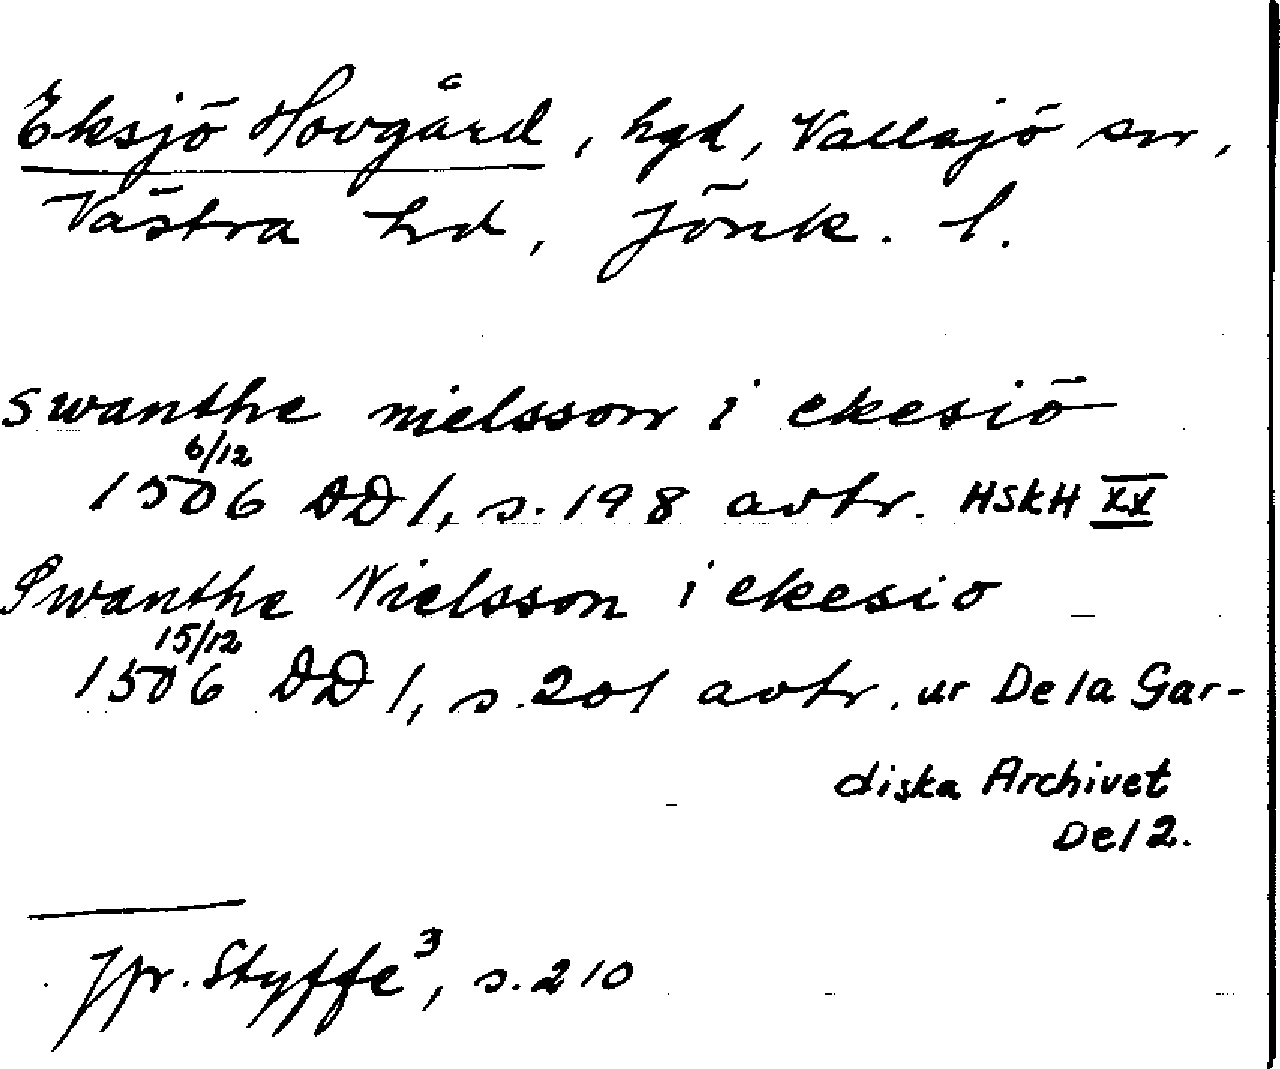 Eksjö Hovgård, hgd, Vallsjö sn,
Västra hd, Jönk. l.
swanthe nielsson i ekesiö
1506 6/12 DD 1, s. 198 avtr. HSKH XX
Swanthe Nielsson i ekesio
1506 15/12 DD 1, s. 201 avtr. ur De la Gar-
diska Archivet
Del 2.
Jfr. Styffe³, s. 210